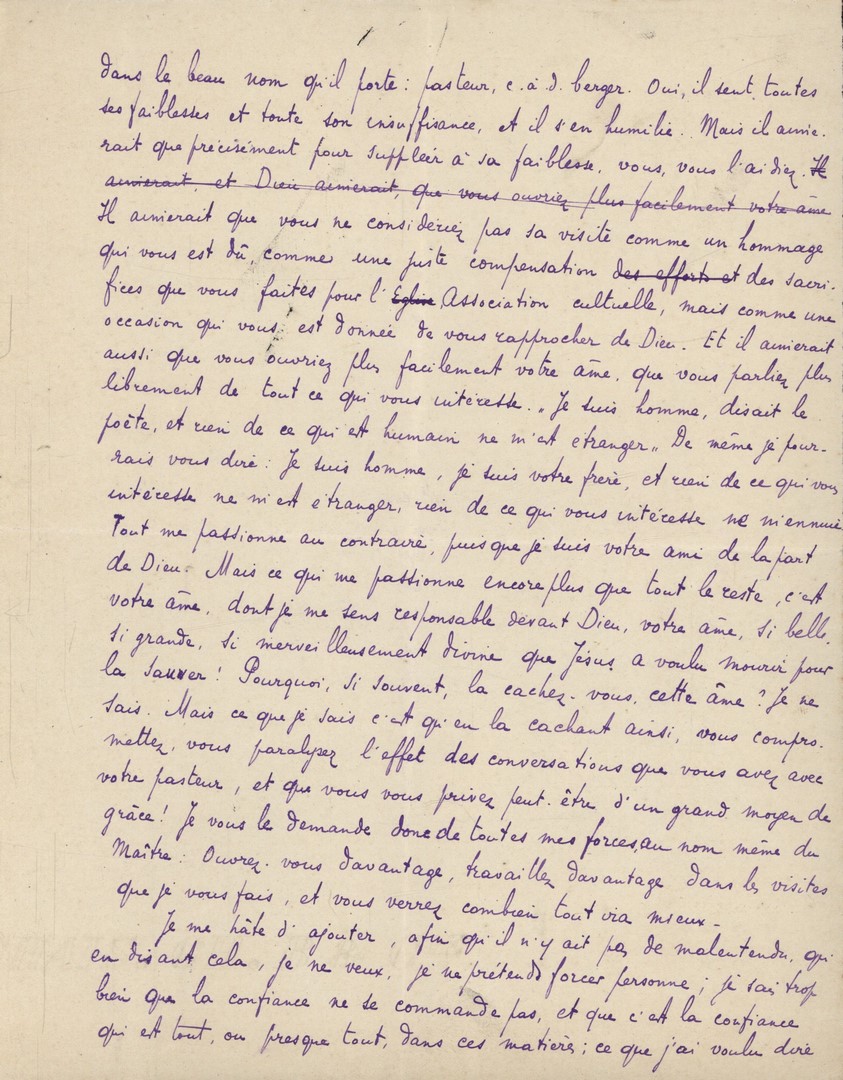 dans le beau nom qu'il porte : pasteur, c. à d. berger. Oui, il sent toutes
ses faiblesses et toute son insuffisance, et il s'en humilie. Mais il aime-
rait que précisément pour suppléer à sa faiblesse, vous, vous l'aidiez. Il
aimerait, et Dieu aimerait, que vous ouvriez plus facilement votre âme
Il aimerait que vous ne considériez pas sa visite comme un hommage
qui vous est dû, comme une juste compensation des efforts et des sacri-
fices que vous faites pour l'Eglise Association cultuelle, mais comme une
occasion qui vous est donnée de vous rapprocher de Dieu. Et il aimerait
aussi que vous ouvriez plus facilement votre âme, que vous parliez plus
librement de tout ce qui vous intéresse. "Je suis homme, disait le
poète, et rien de ce qui est humain ne m'est étranger" De même je pour-
rais vous dire : Je suis homme, je suis votre frère, et rien de ce qui vous
intéresse ne m'est étranger, rien de ce qui vous intéresse ne m'ennuie
Tout me passionne au contraire, puisque je suis votre ami de la part
de Dieu. Mais ce qui me passionne encore plus que tout le reste, c'est
votre âme, dont je me sens responsable devant Dieu, votre âme, si belle,
si grande, si merveilleusement divine que Jésus a voulu mourir pour
la sauver ! Pourquoi, si souvent, la cachez-vous, cette âme ? Je ne
sais. Mais ce que je sais c'est qu'en la cachant ainsi, vous compro-
mettez, vous paralysez l'effet des conversations que vous avez avec
votre pasteur, et que vous vous privez peut-être d'un grand moyen de
grâce ! Je vous le demande donc de toutes mes forces, au nom même du
Maître : Ouvrez-vous davantage, travaillez davantage dans les visites
que je vous fais, et vous verrez combien tout ira mieux.
Je me hâte d'ajouter, afin qu'il n'y ait pas de malentendu, qu'
en disant cela, je ne veux, je ne prétends forcer personne ; je sais trop
bien que la confiance ne se commande pas, et que c'est la confiance
qui est tout, ou presque tout, dans ces matières ; ce que j'ai voulu dire